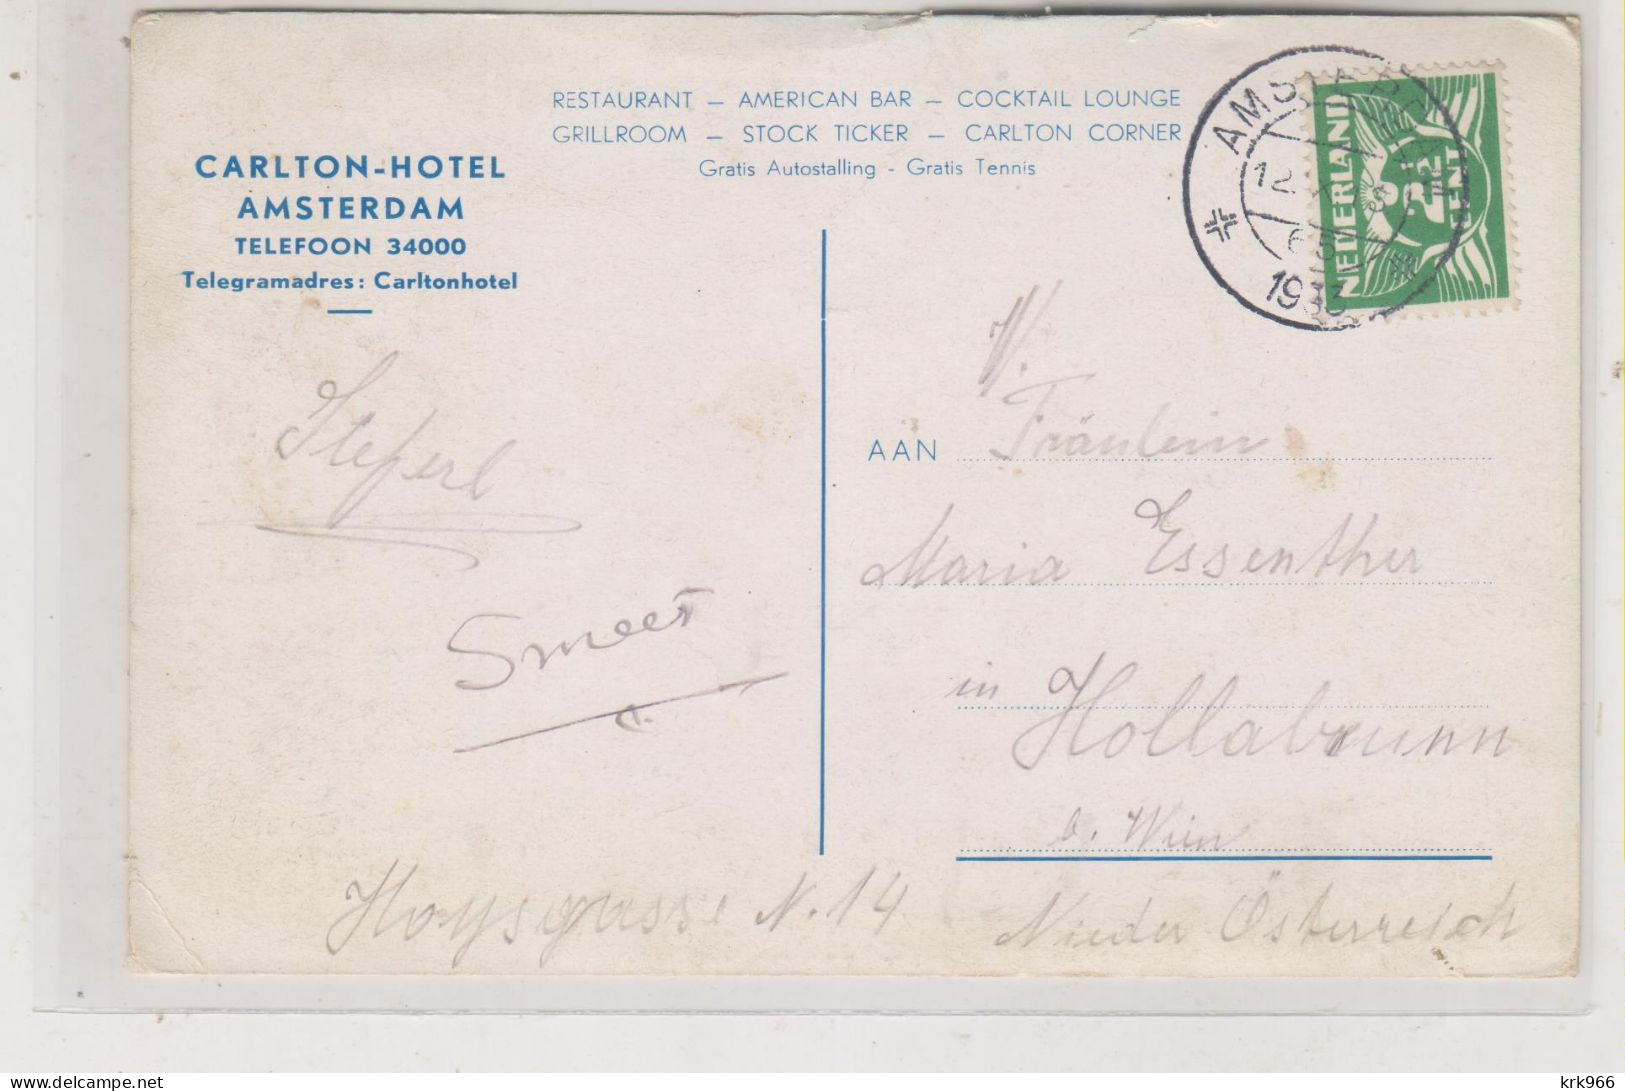 RESTAURANT – AMERICAN BAR – COCKTAIL LOUNGE
GRILLROOM – STOCK TICKER – CARLTON CORNER
Gratis Autostalling - Gratis Tennis
CARLTON-HOTEL
AMSTERDAM
TELEFOON 34000
Telegramadres: Carltonhotel
AMSTERDAM
12
1933
NEDERLAND
2½ CENT
Steferl
Smeet
AAN Fräulein
Maria Essenther
in Hollabrunn
b. Wien
Hoysgasse N.14
Nieder Österreich
krk966